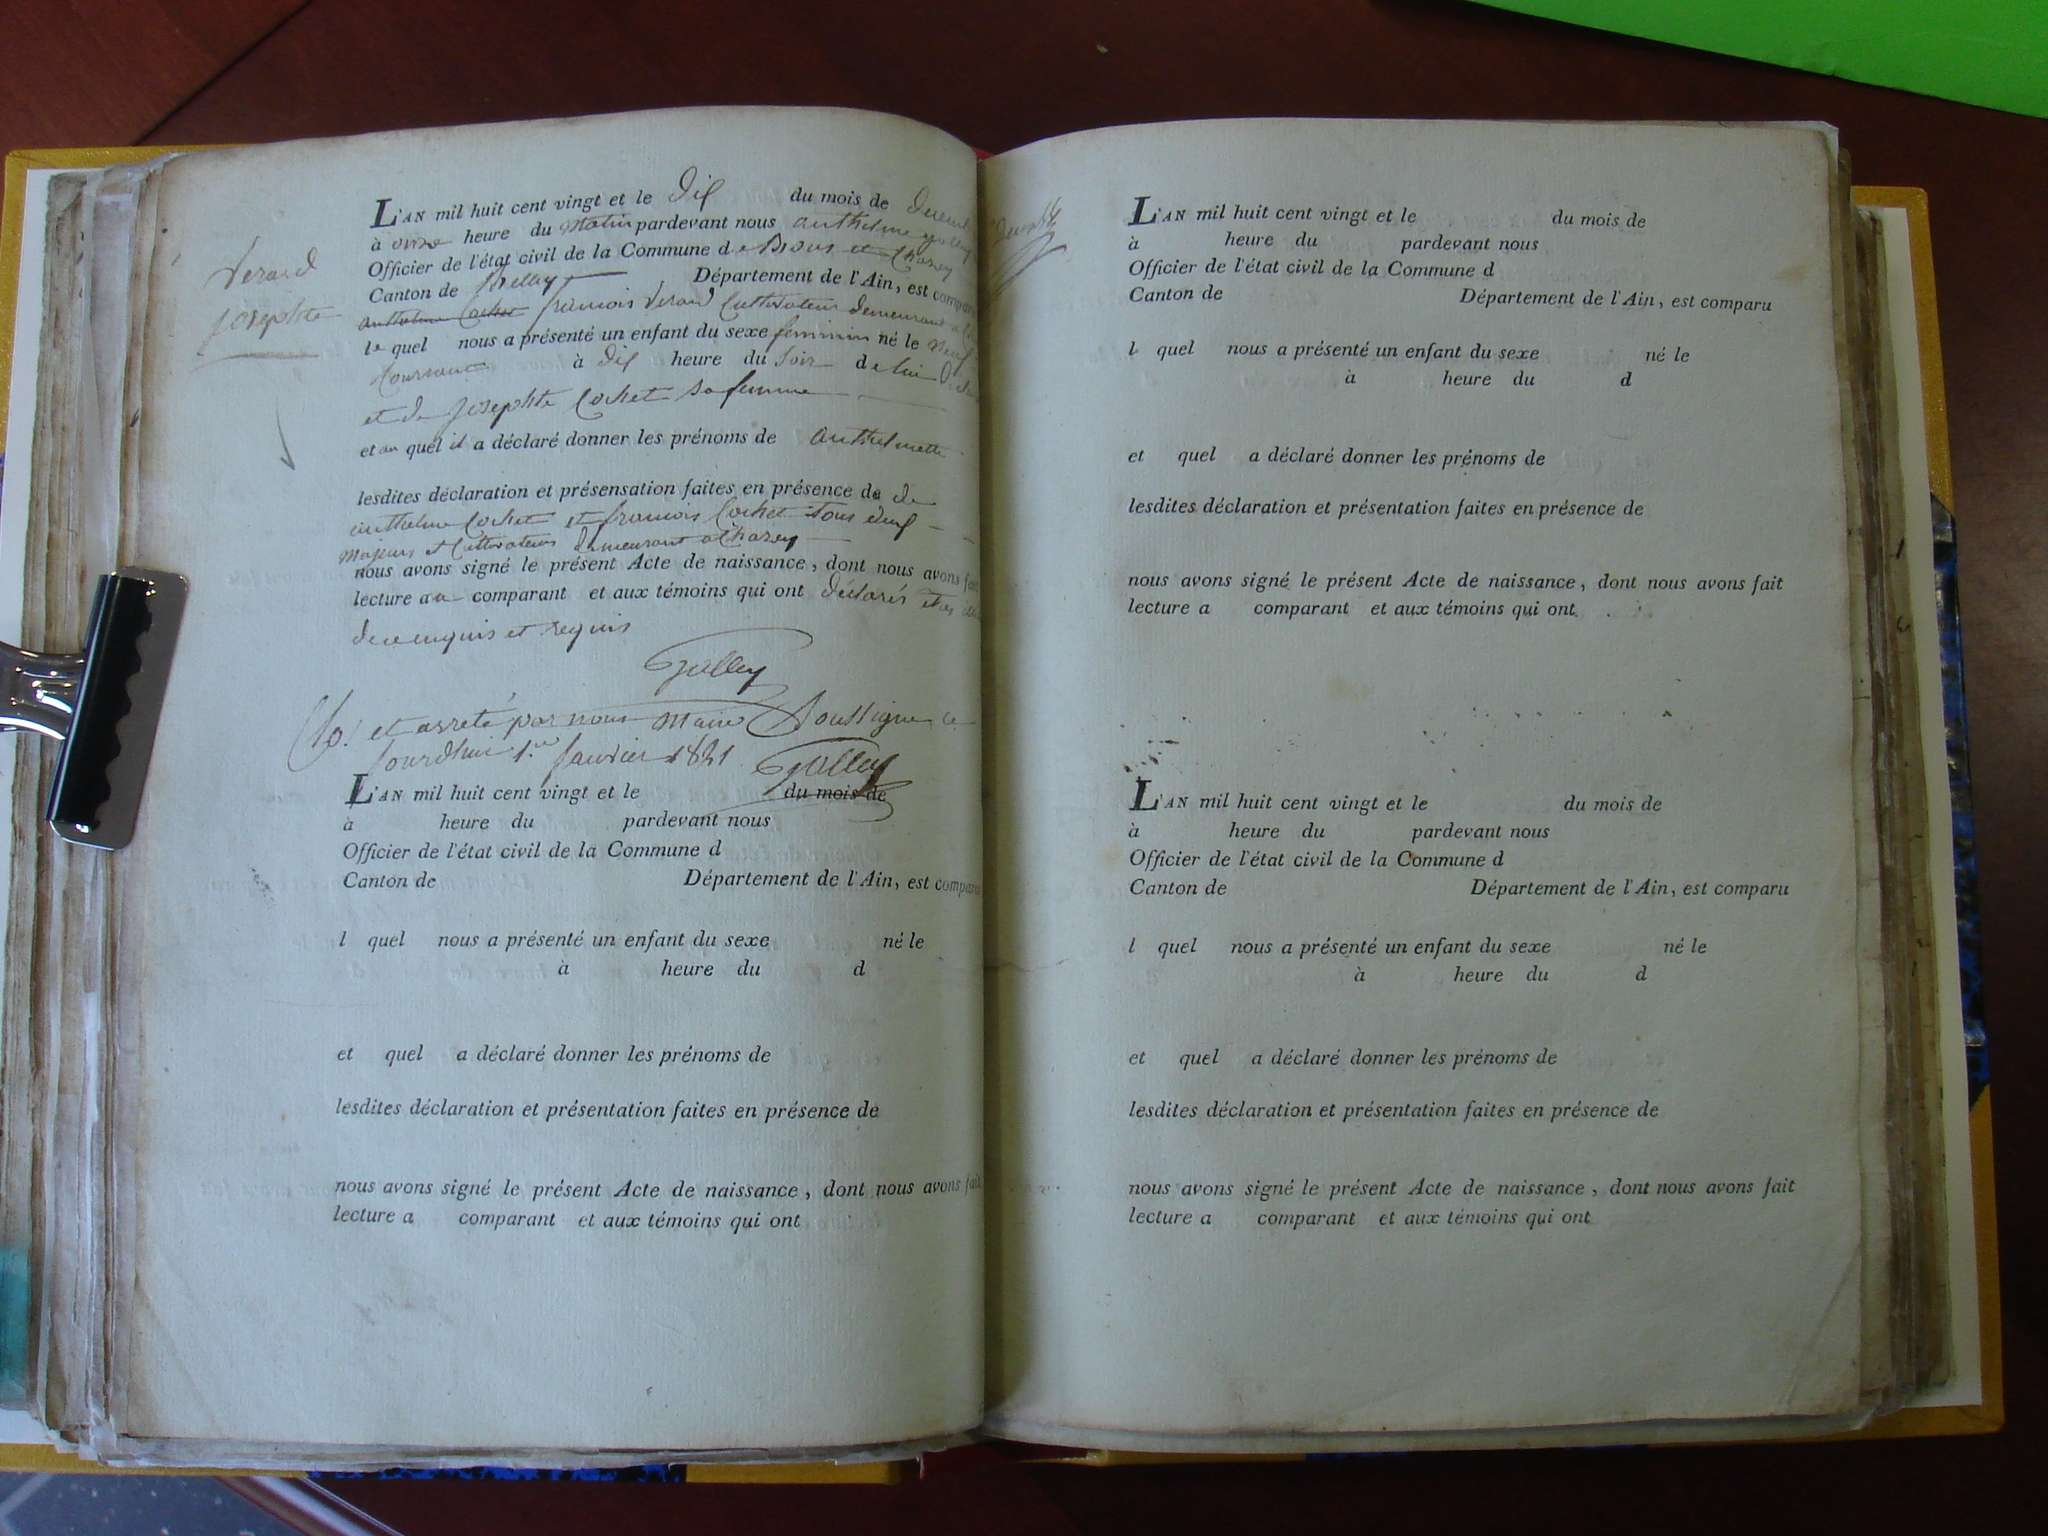 Verard
josephte
L'AN mil huit cent vingt et le Dix du mois de
à onze heure du matin pardevant nous anthelme
Officier de l'état civil de la Commune de Brens et Chazey
Canton de Belley Département de l'Ain, est comparu
anthelme Cochet francois Verard Cultivateur demeurant a
le quel nous a présenté un enfant du sexe feminin né le neuf
Courant à dix heure du soir de lui
et de josephte Cochet sa femme
et au quel il a déclaré donner les prénoms de anthelmette
lesdites déclaration et présensation faites en présence de de
anthelme Cochet et francois Cochet tous deux
majeurs et Cultivateurs demeurant a Chazey
nous avons signé le présent Acte de naissance, dont nous avons fait
lecture au comparant et aux témoins qui ont déclarés
de ce enquis et requis
Golley
Clo. et arreté par nous maire Soussigné ce
jourdhui 1.er janvier 1821 Golley
L'AN mil huit cent vingt et le du mois de
à heure du pardevant nous
Officier de l'état civil de la Commune d
Canton de Département de l'Ain, est comparu
l quel nous a présenté un enfant du sexe né le
à heure du d
et quel a déclaré donner les prénoms de
lesdites déclaration et présentation faites en présence de
nous avons signé le présent Acte de naissance, dont nous avons fait
lecture a comparant et aux témoins qui ont
L'AN mil huit cent vingt et le du mois de
à heure du pardevant nous
Officier de l'état civil de la Commune d
Canton de Département de l'Ain, est comparu
l quel nous a présenté un enfant du sexe né le
à heure du d
et quel a déclaré donner les prénoms de
lesdites déclaration et présentation faites en présence de
nous avons signé le présent Acte de naissance, dont nous avons fait
lecture a comparant et aux témoins qui ont
L'AN mil huit cent vingt et le du mois de
à heure du pardevant nous
Officier de l'état civil de la Commune d
Canton de Département de l'Ain, est comparu
l quel nous a présenté un enfant du sexe né le
à heure du d
et quel a déclaré donner les prénoms de
lesdites déclaration et présentation faites en présence de
nous avons signé le présent Acte de naissance, dont nous avons fait
lecture a comparant et aux témoins qui ont